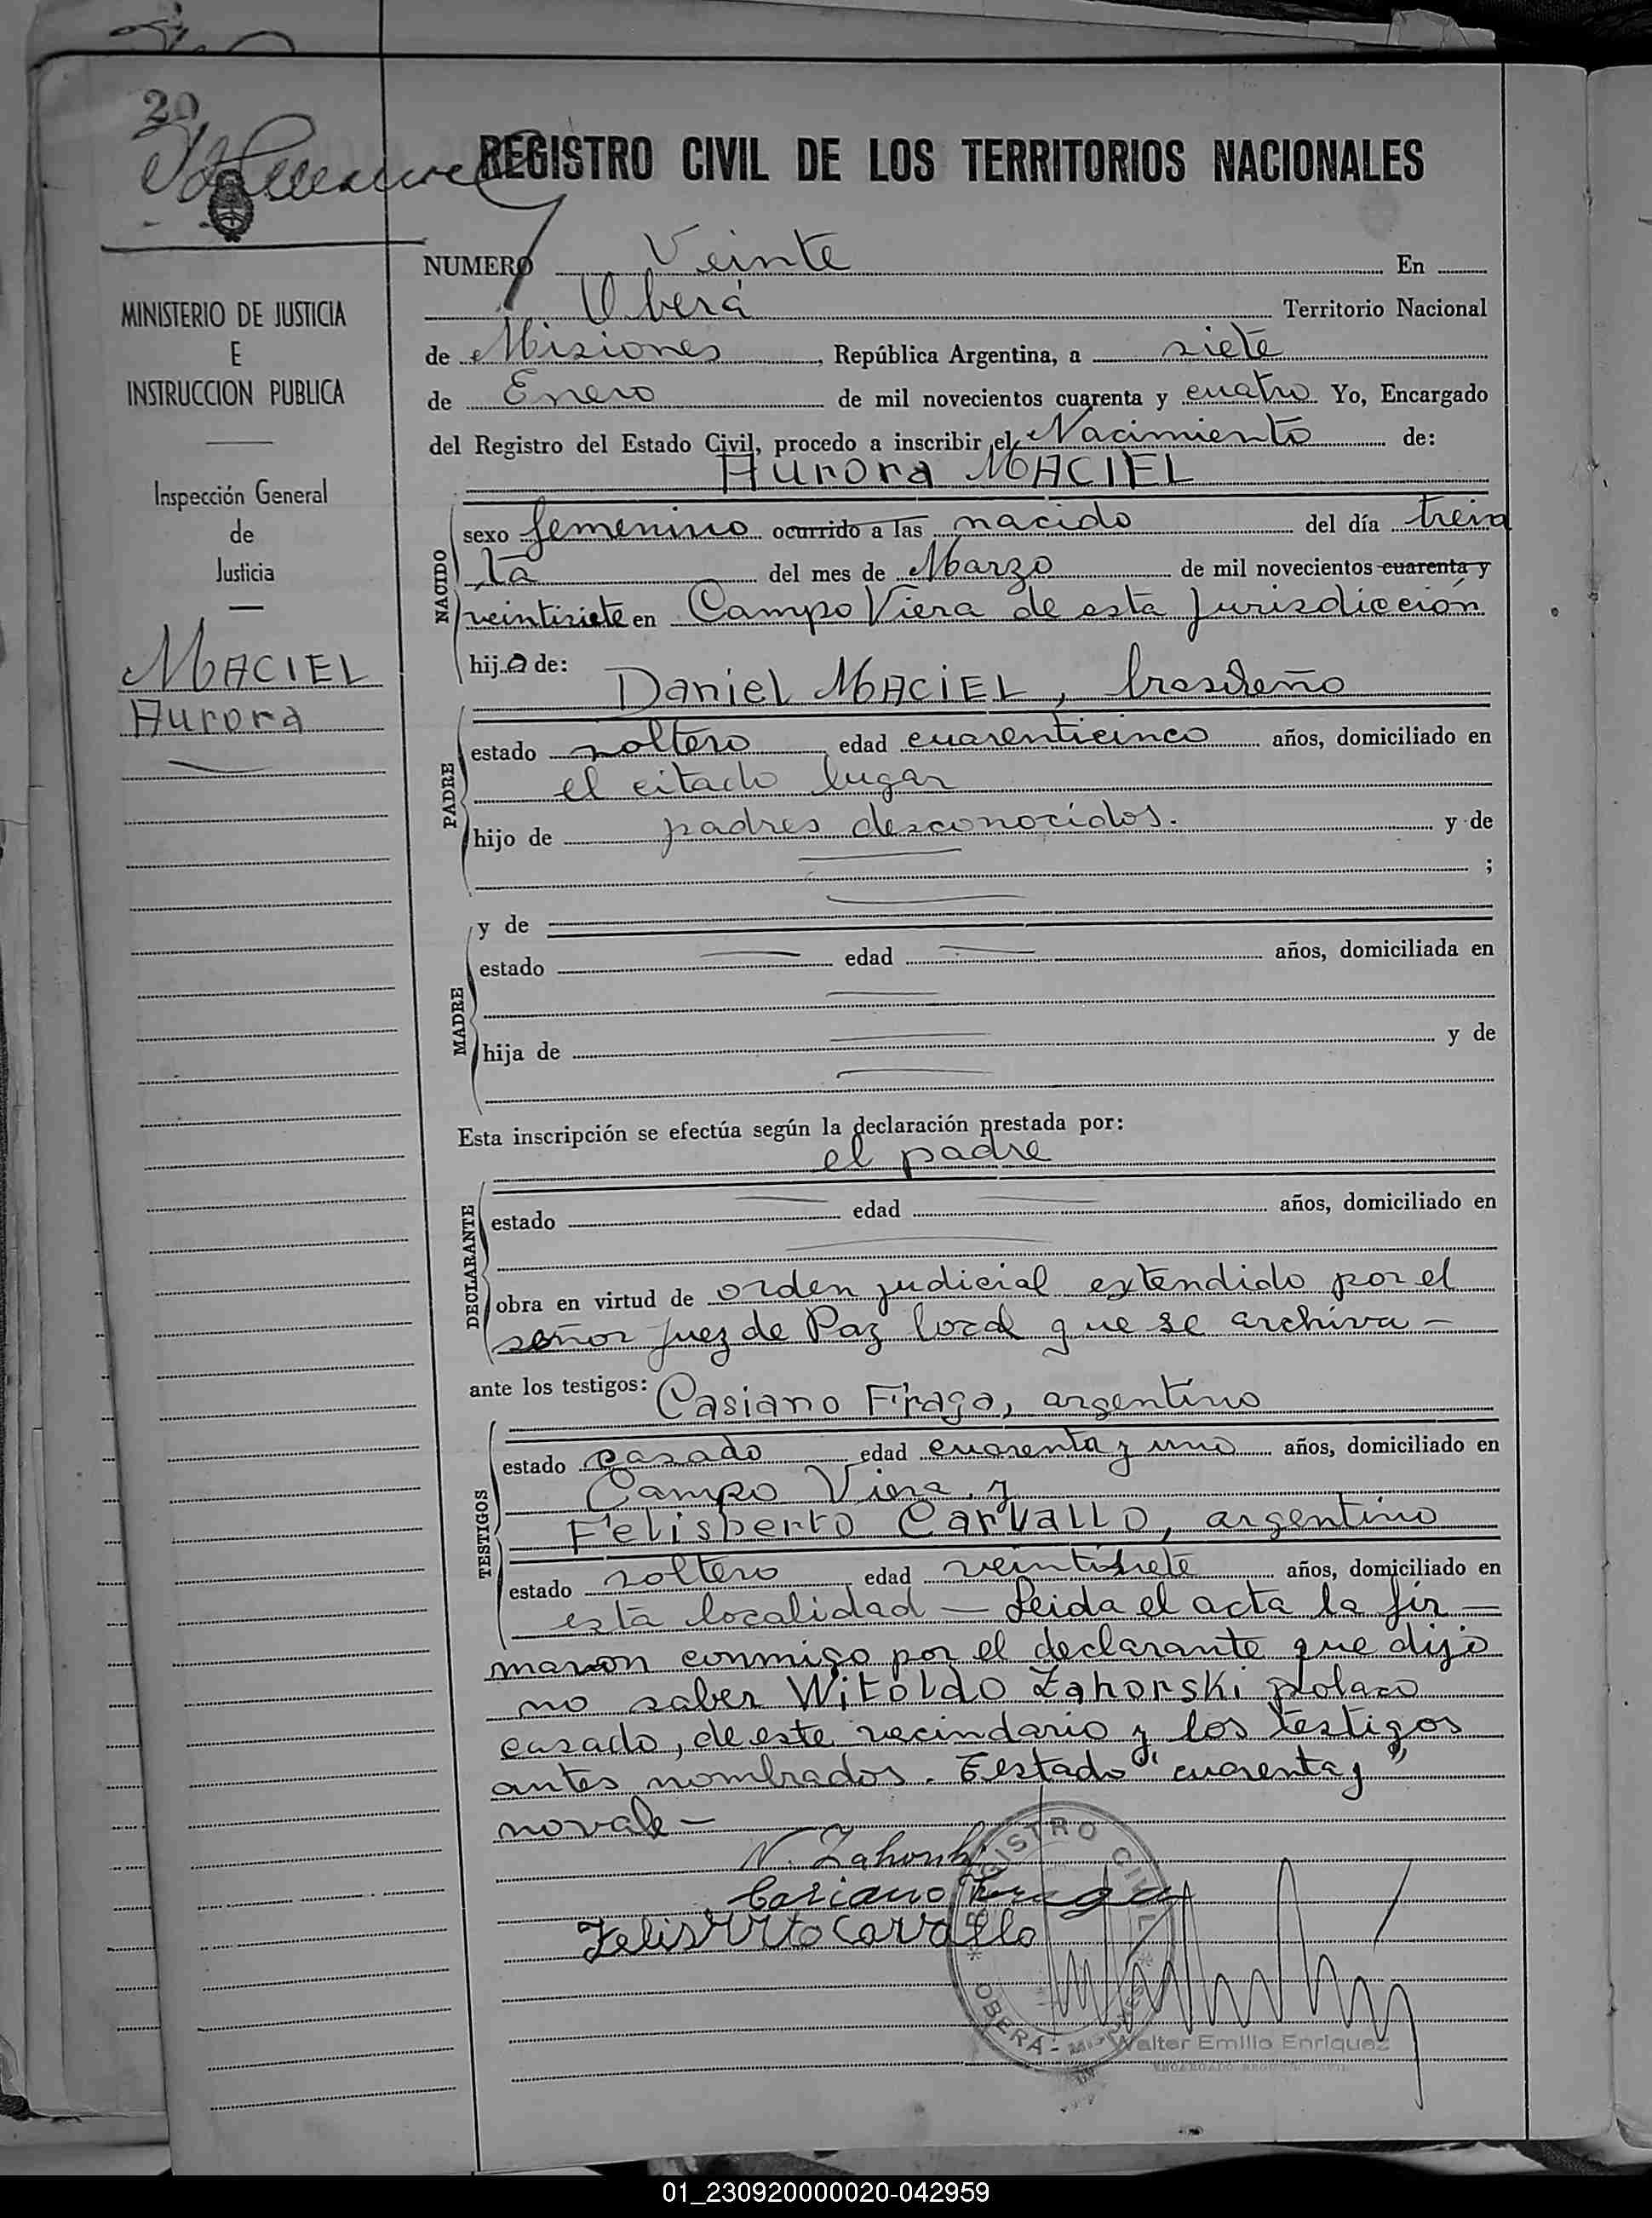 20
REGISTRO CIVIL DE LOS TERRITORIOS NACIONALES
NUMERO Veinte En
Oberá Territorio Nacional
de Misiones, República Argentina, a siete
de Enero de mil novecientos cuarenta y cuatro Yo, Encargado
del Registro del Estado Civil, procedo a inscribir el Nacimiento de:
Aurora MACIEL
MINISTERIO DE JUSTICIA
E
INSTRUCCION PUBLICA
Inspección General
de
Justicia
MACIEL
Aurora
NACIDO
sexo femenino ocurrido a las nacido del día trein
ta del mes de Marzo de mil novecientos cuarenta y
veintisiete en Campo Viera de esta Jurisdicción
hija de:
Daniel MACIEL, brasileño
PADRE
estado soltero edad cuarenticinco años, domiciliado en
el citado lugar
hijo de padres desconocidos. y de
;
MADRE
y de
estado edad años, domiciliada en
hija de y de
Esta inscripción se efectúa según la declaración prestada por:
el padre
DECLARANTE
estado edad años, domiciliado en
obra en virtud de orden judicial extendido por el
señor juez de Paz local que se archiva -
ante los testigos: Casiano Fraga, argentino
TESTIGOS
estado casado edad cuarenta y uno años, domiciliado en
Campo Viera y
Felisberto Carvallo, argentino
estado soltero edad veintisiete años, domiciliado en
esta localidad - Leida el acta la fir-
maron conmigo por el declarante que dijo
no saber Witoldo Zahorski polaco
casado, de este vecindario y los testigos
antes nombrados. Testado "cuarenta y"
no vale -
Casiano Fraga
Felisberto Carvallo
REGISTRO CIVIL
OBERÁ - MISIONES
Walter Emilio Enriquez
ENCARGADO REGISTRO CIVIL
01_230920000020-042959